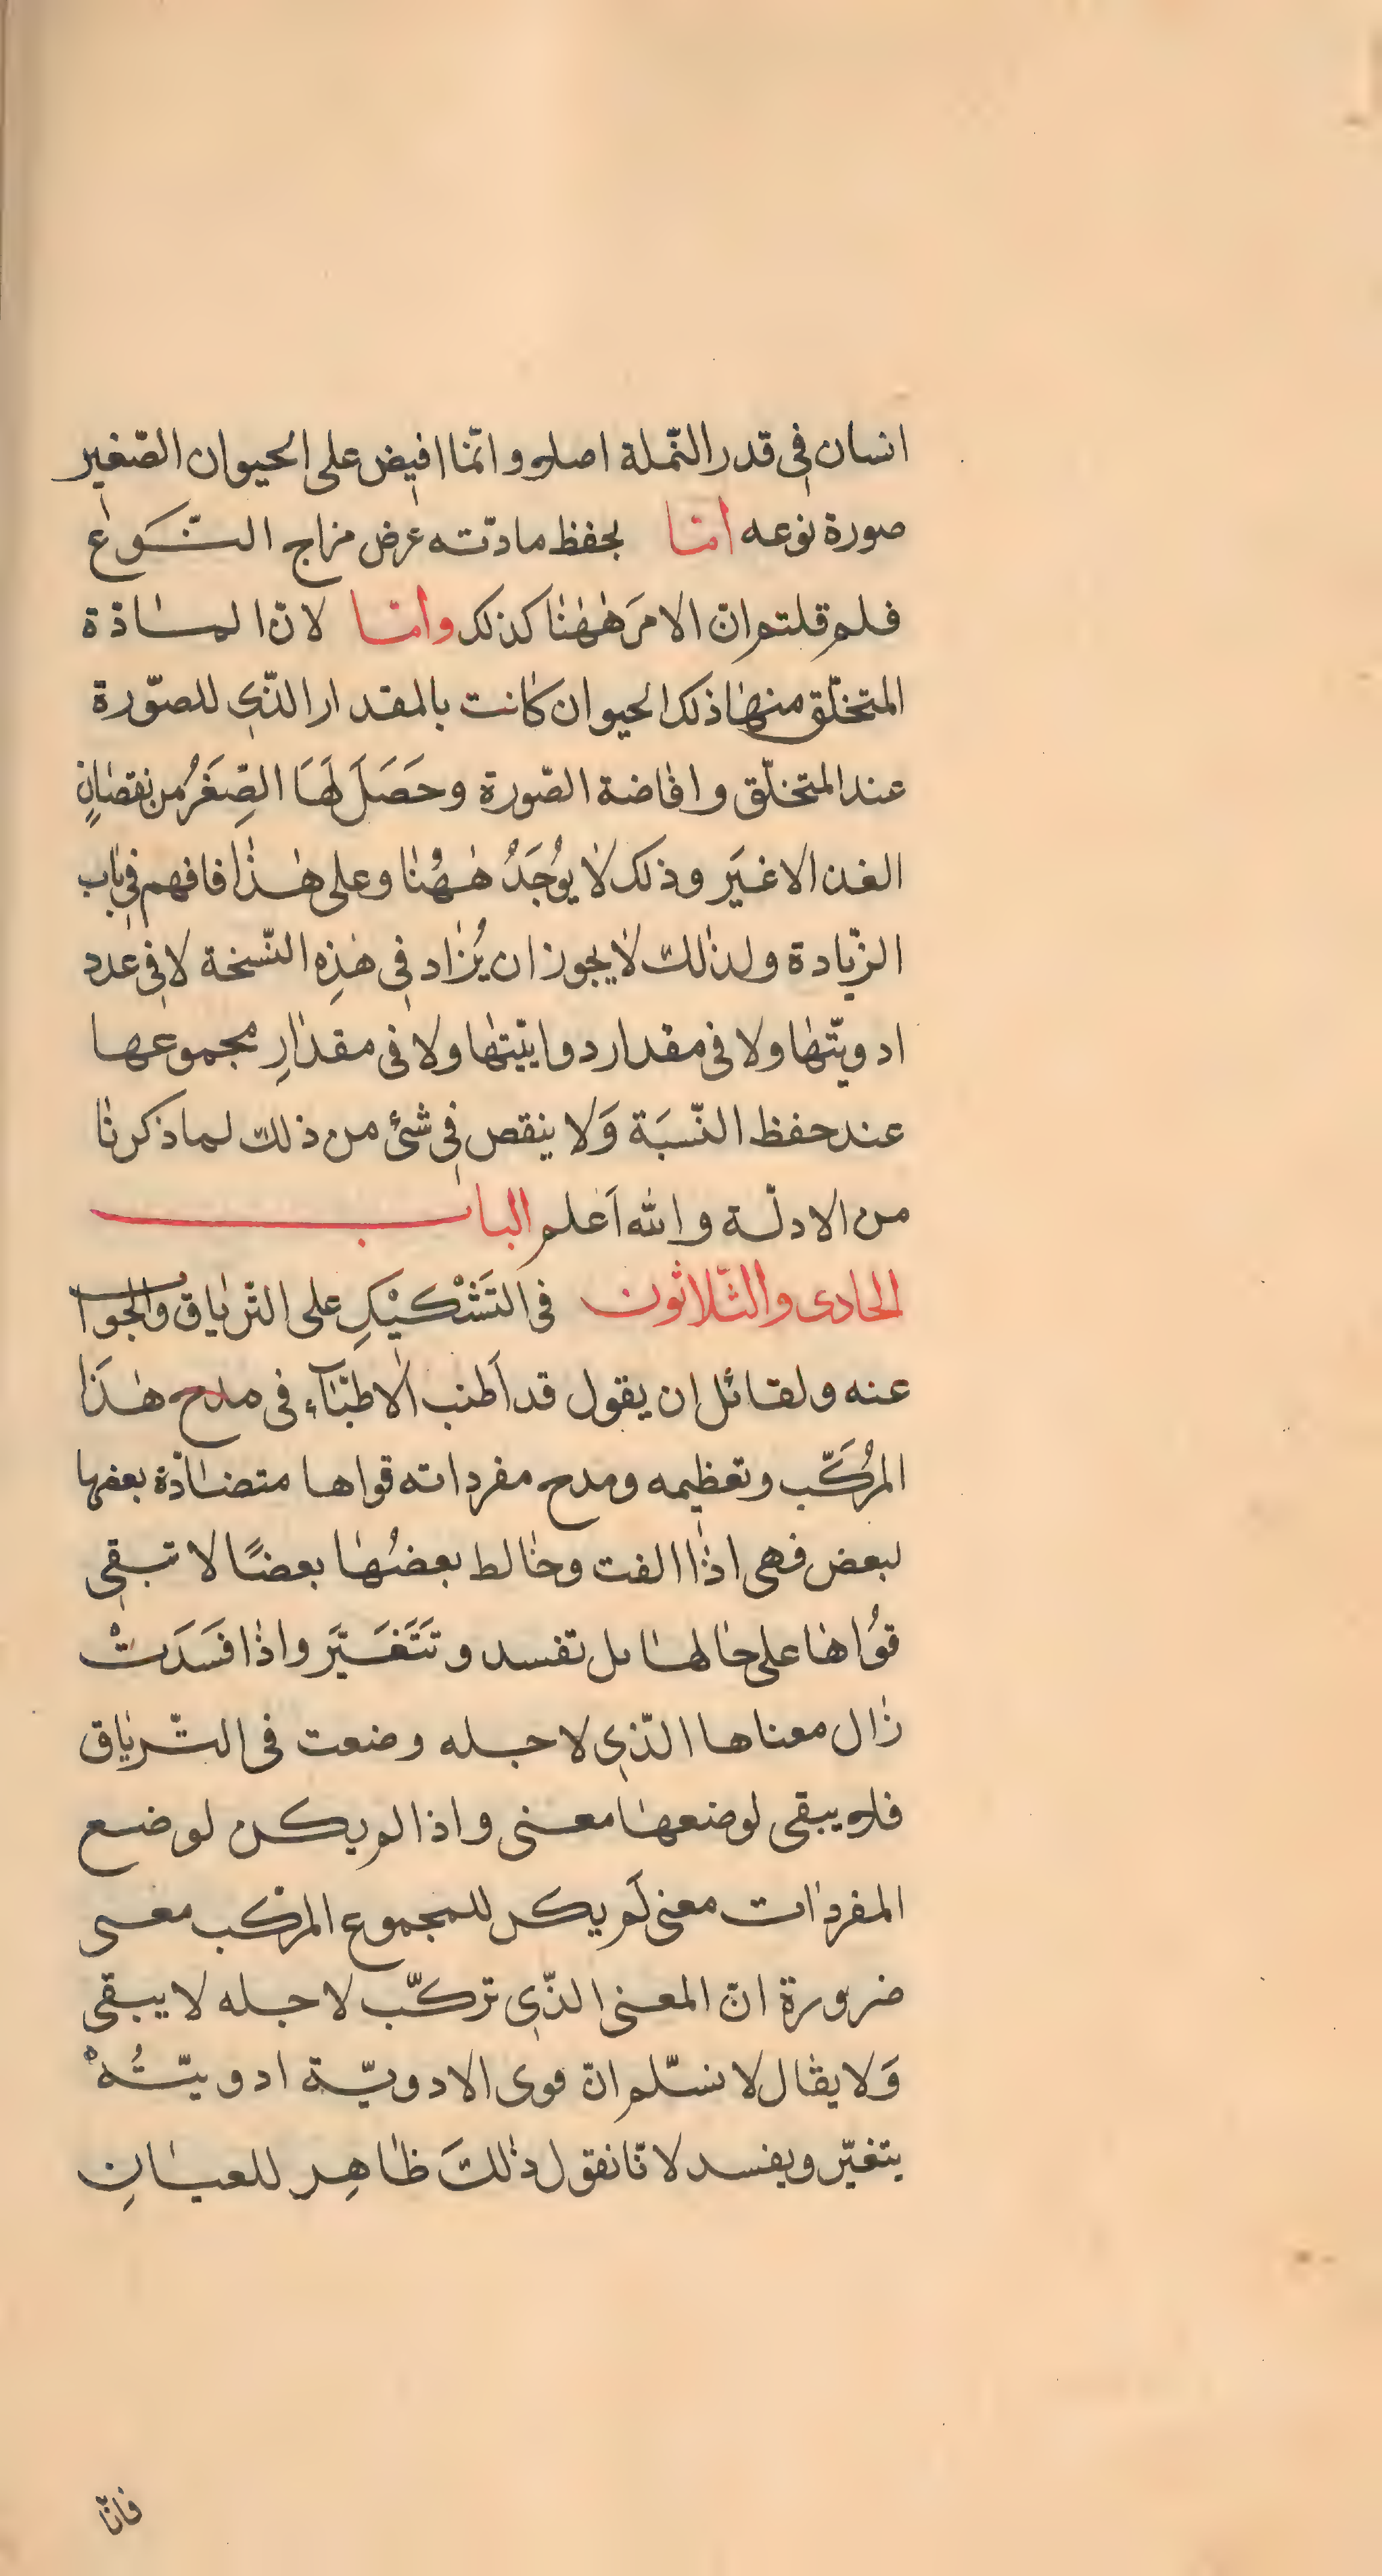 انسان فی قدر النّملة اصلا وانّما افیض علی الحیوان الصّغیر
صورة نوعه امّا بحفظ مادّته عرض مزاج النّوع
فلم قلتم انّ الامرَ هٰهُنا کذلک وامّا لانّ المادّة
المتخلّق منها ذلک الحیوان کانت بالمقدار الذّی للصّورة
عند المتخلّق وافاضة الصّورة وحَصَلَ لَهَا الصِغَرُ من نقصانٍ
الغذ الاغیَر وذلک لا یُوجَدُ هٰهُنا وعلی هٰذا فافهم فی باب
الزّیادة ولذٰلک لا یجوز ان یُزاد فی هٰذِه النّسخة لا فی عدد
ادویّتها ولا فی مقدار دوایتّها ولا فی مقدارِ مجموعها
عند حفظ النّسبَة وَلا ینقص فی شئ من ذلک لما ذکرنا
من الادلّة والله اَعلم الباب
الحادی والثّلاثون فی التَشْکیْکِ علی التّریاق والجواب
عنه ولقائل ان یقول قد اَطنب الاطبّاء فی مدح هٰذَا
المُرکَّب وتعظیمه ومدح مفرداته قواها متضادّة بعضها
لبعض فهی اذا الفت وخالط بعضُها بعضًا لا تبقی
قوُاها علی حالها بل تفسد وتَتَغَیَّر واذا فَسَدَتْ
زال معناها الذّی لاجله وضعت فی التّریاق
فلا یبقی لوضعها معنی واذا لم یکن لوضع
المفردات معنی لَم یکن للمجموع المرکّب معنی
ضرورة انّ المعنی الذّی ترکّب لاجله لا یبقی
وَلا یقال لا نسّلم انّ قوی الادویّة ادویّتُهْ
یتغیّر ویفسد لانّا نقول ذٰلکَ ظاهِر للعیانِ
فانّا